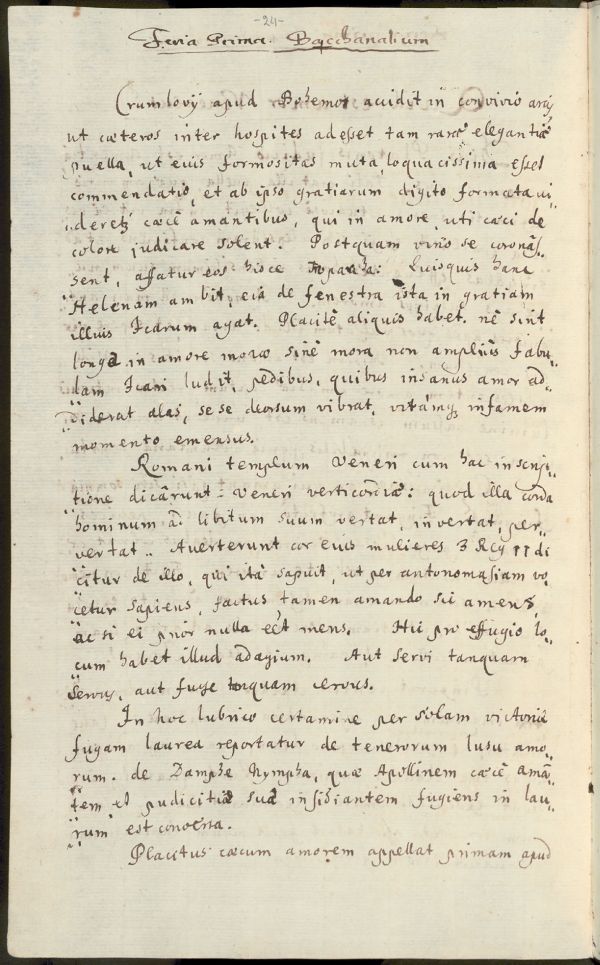 -24-
Feria Prima. Bacchanalium
Crumlovÿ apud Bohemos accidit in convivio
ut cæteros inter hospites adesset tam raræ elegantiæ
puella, ut eius formositas muta, loquacissima esset
commendatio, et ab ipso gratiarum digito formata vi-
deretꝫ cæcè amantibus, qui in amore, uti cæci de
colore judicare solent. Postquam vino se coronâs-
sent, affatur eos hisce Quisquis hanc
Helenam ambit, eia de fenestra ista in gratiam
illius Icarum agat. Placitè aliquis habet. nè sint
longæ in amore moræ sinè mora non ampliùs fabu-
lam Icari ludit, pedibus, quibus insanus amor ad-
diderat alas, se se deorsum vibrat, vitámqꝫ infamem
momento emensus.
Romani templum Veneri cum hac inscrip-
tione dicârunt: Veneri verticordiæ: quod illa corda
hominum ad libitum suum vertat, invertat, per-
vertat.. Averterunt cor eius mulieres 3 Reg 11 di-
citur de illo, qui ità sapuit, ut per antonomasiam vo-
cetur sapiens, factus tamen amando sic amens,
ac si ei prior nulla esset mens. Hic pro effugio lo-
cum habet illud adagium. Aut servi tanquam
servus, aut fuge tanquam cervus.
In hoc lubrico certamine per solam victoriæ
fugam laurea reportatur de tenerorum lusu amo-
rum. de Damphe Nympha, quæ Apollinem cæcè amā-
tem et pudicitiæ suæ insidiantem fugiens in lau-
rum est conversa.
Placitus cæcum amorem appellat primam apud